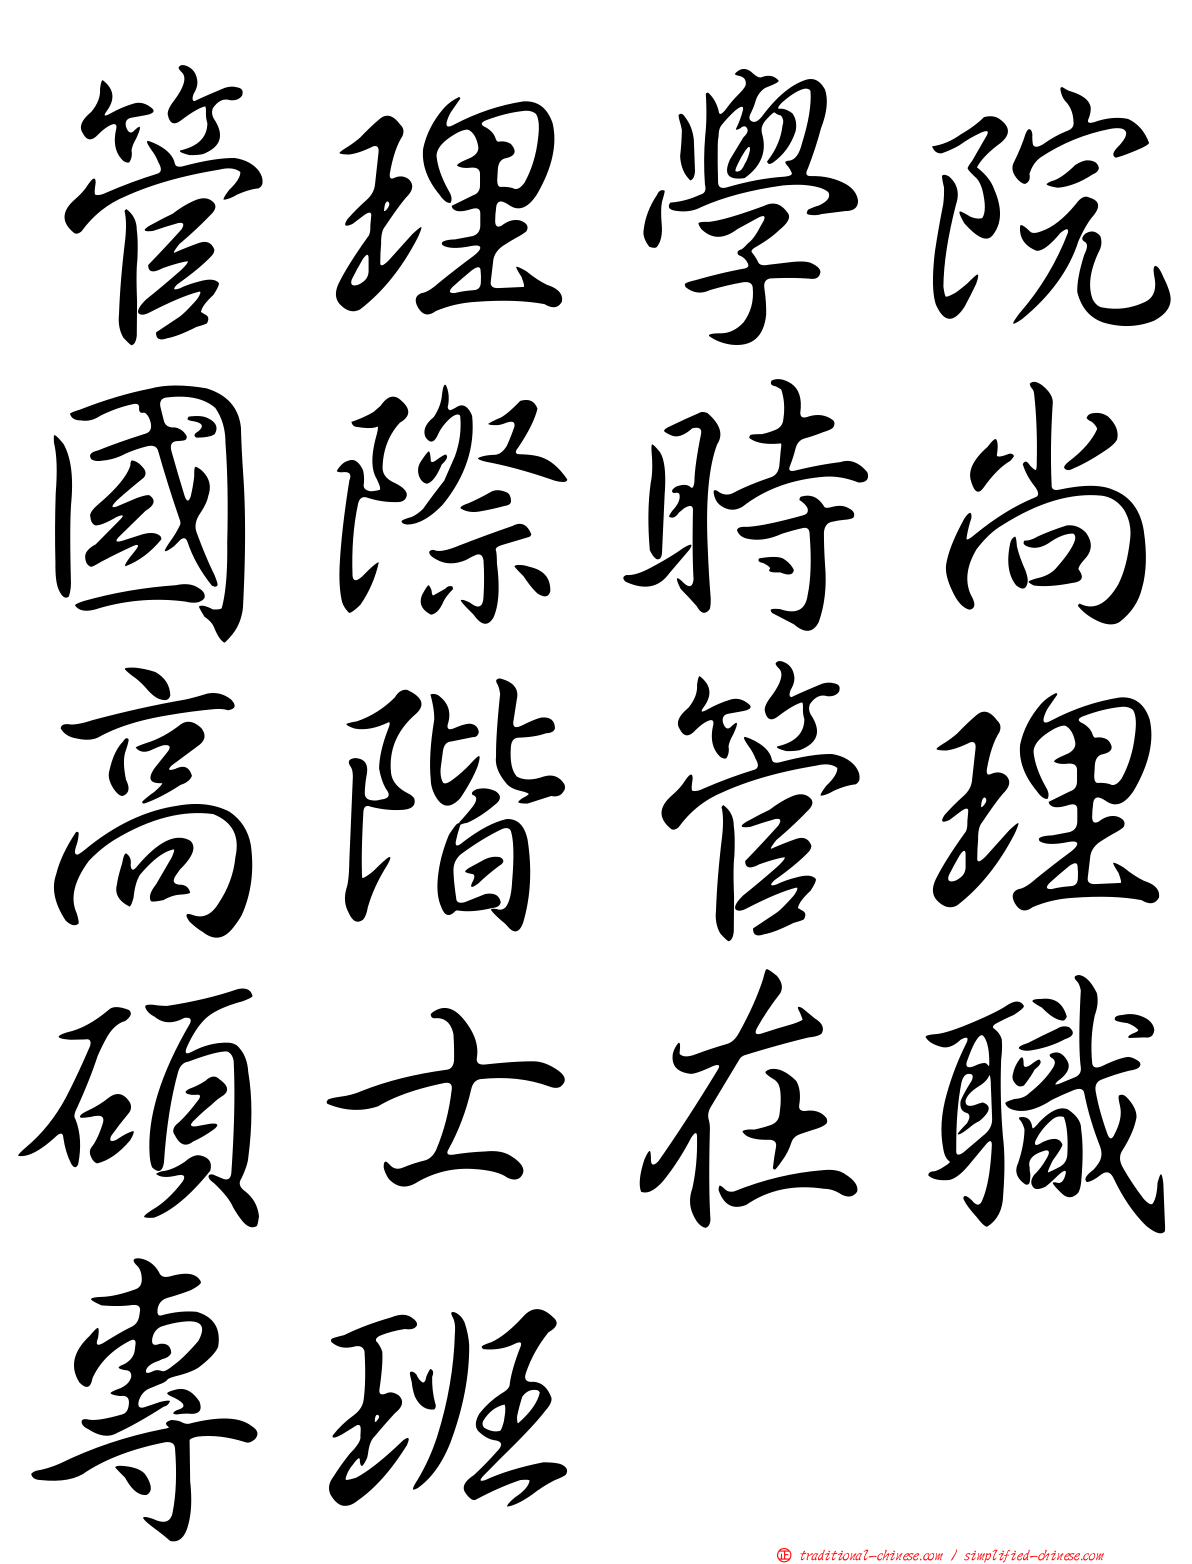 管理學院
國際時尚
高階管理
碩士在職
專班
㊣ traditional-chinese.com / simplified-chinese.com